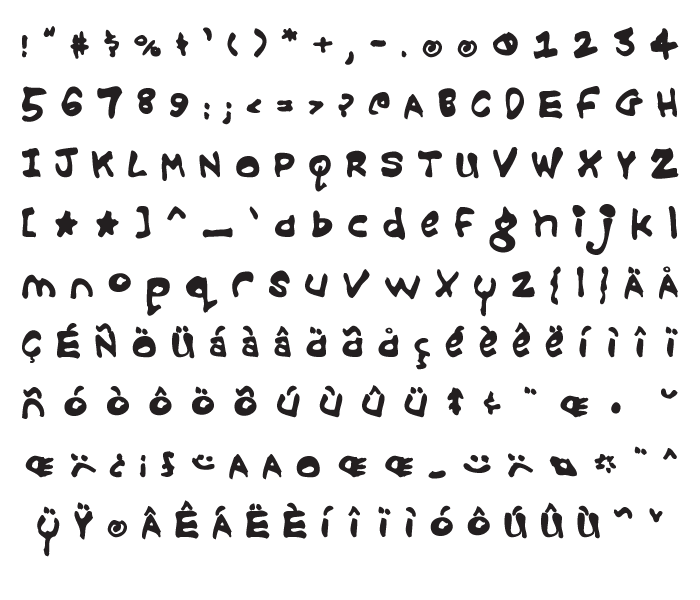 ! " # $ % ' ( ) * + , - . 0 1 2 3 4
5 6 7 8 9 : ; < = > ? @ A B C D E F G H
I J K L M N O P Q R S T U V W X Y Z
[ ★ ★ ] ^ _ ` a b c d e f g h i j k l
m n o p q r s u v w x y z { | } Ä Å
Ç É Ñ Ö Ü á à â ä ã å ç é è ê ë í ì î ï
ñ ó ò ô ö õ ú ù û ü ¢ ¨ Œ • ˘
Œ ¿ ¡ § A A O Œ Œ _ ¨ ^
ÿ Ÿ Â Ê Á Ë È í î ï ì ó ô Ú Û Ù ˜ ˇ